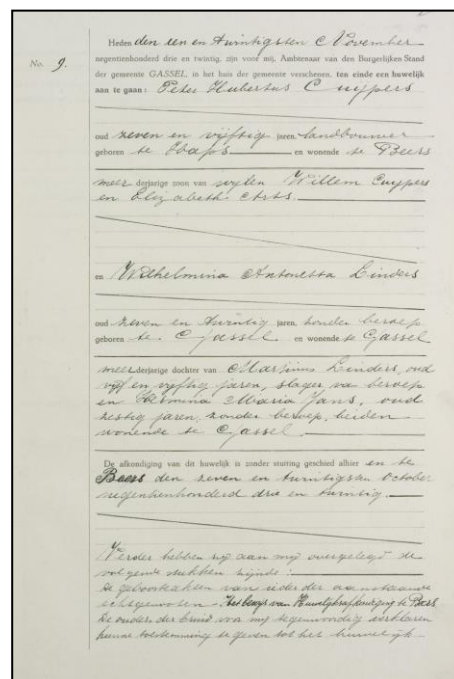 Heden den een en twintigsten November
No. 9.
negentienhonderd drie en twintig, zijn voor mij, Ambtenaar van den Burgerlijken Stand
der gemeente GASSEL, in het huis der gemeente verschenen, ten einde een huwelijk
aan te gaan: Peter Hubertus Cuijpers
oud zeven en vijftig jaren, landbouwer
geboren te Haps en wonende te Beers
meerderjarige zoon van wijlen Willem Cuijpers
en Elizabeth Arts.
en Wilhelmina Antonetta Linders
oud zeven en twintig jaren, zonder beroep
geboren te Gassel en wonende te Gassel
meerderjarige dochter van Martinus Linders, oud
vijf en vijftig jaren, slager van beroep
en Hermina Maria Jans, oud
zestig jaren, zonder beroep, beiden
wonende te Gassel.
De afkondiging van dit huwelijk is zonder stuiting geschied alhier en te
Beers den zeven en twintigsten October
negentienhonderd drie en twintig.
Verder hebben zij aan mij overgelegd de
volgende stukken zijnde:
de geboorteakten van ieder der aanstaande
echtgenooten. Het bewijs van Huwelijksafkondiging te Beers
De ouders der bruid voor mij tegenwoordig verklaren
hunne toestemming te geven tot het huwelijk